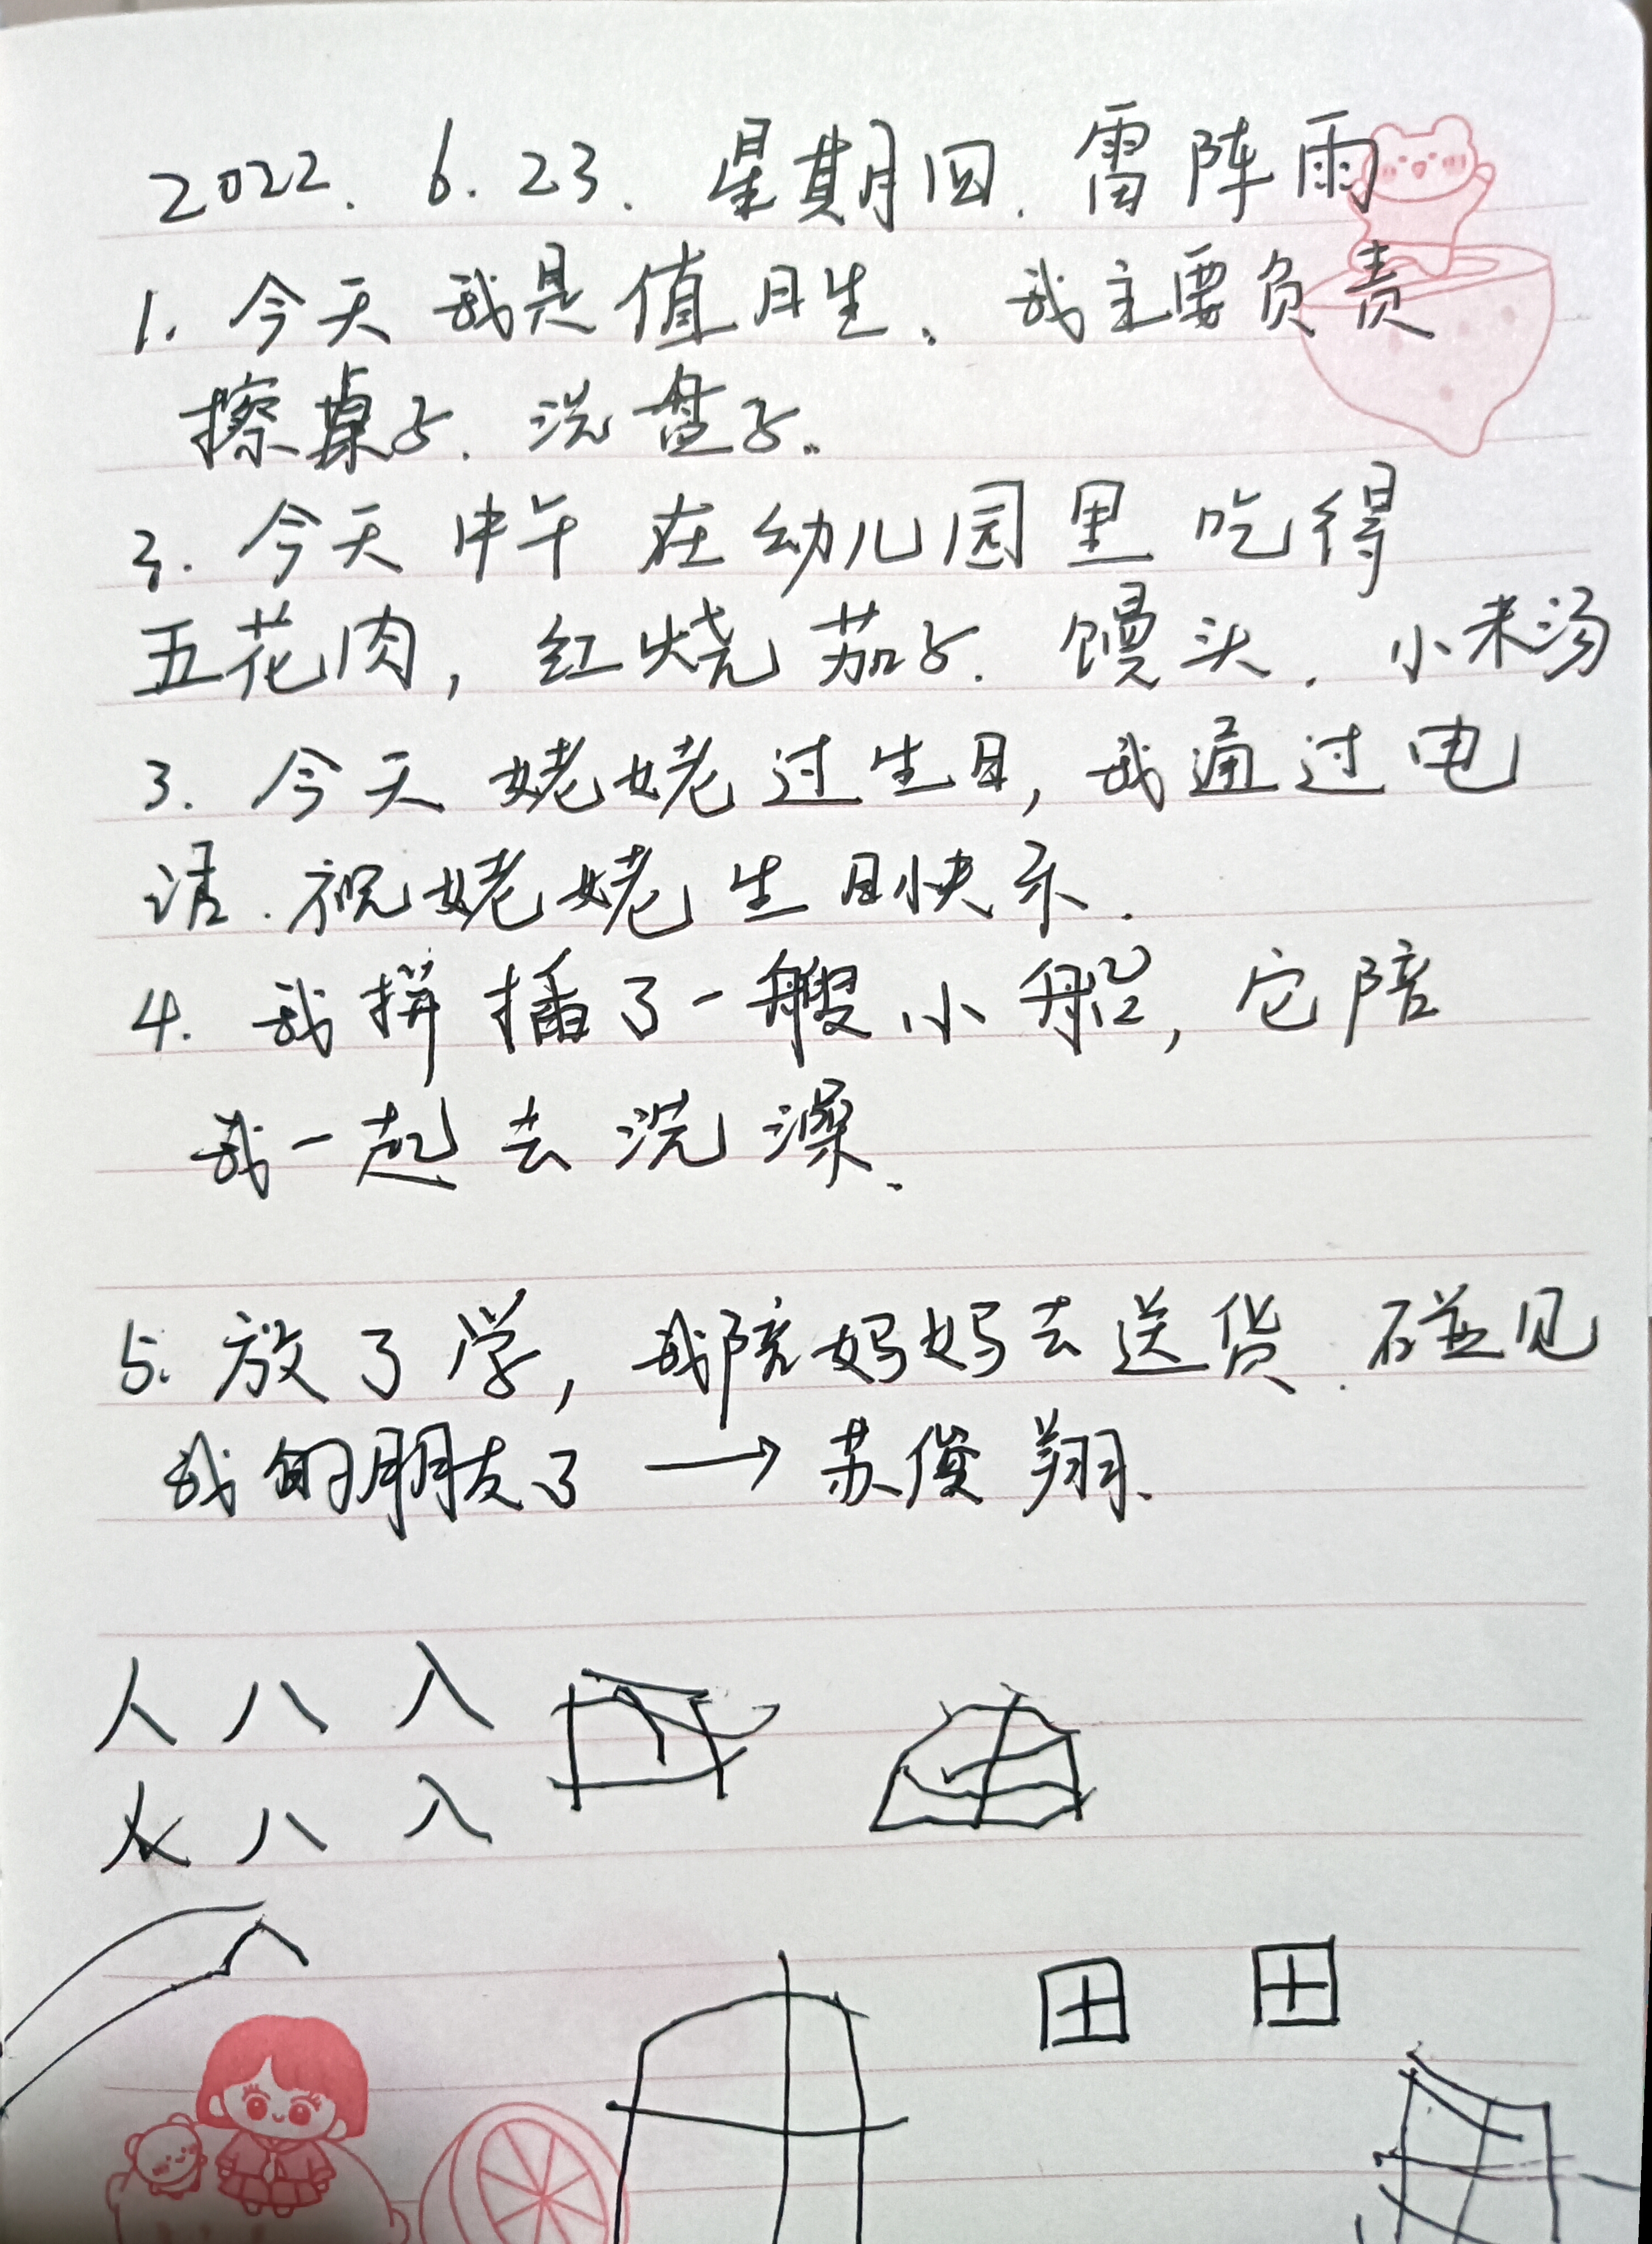 2022. 6. 23. 星期四. 雷阵雨
1. 今天我是值日生、我主要负责
擦桌子. 洗盘子.
2. 今天中午在幼儿园里吃得
五花肉, 红烧茄子. 馒头. 小米汤
3. 今天姥姥过生日, 我通过电
话. 祝姥姥生日快乐.
4. 我拼插了一艘小船, 它陪
我一起去洗澡.
5. 放了学, 我陪妈妈去送货. 碰见
我的朋友了 → 苏俊翔.
人 八 入
人 八 入
田 田